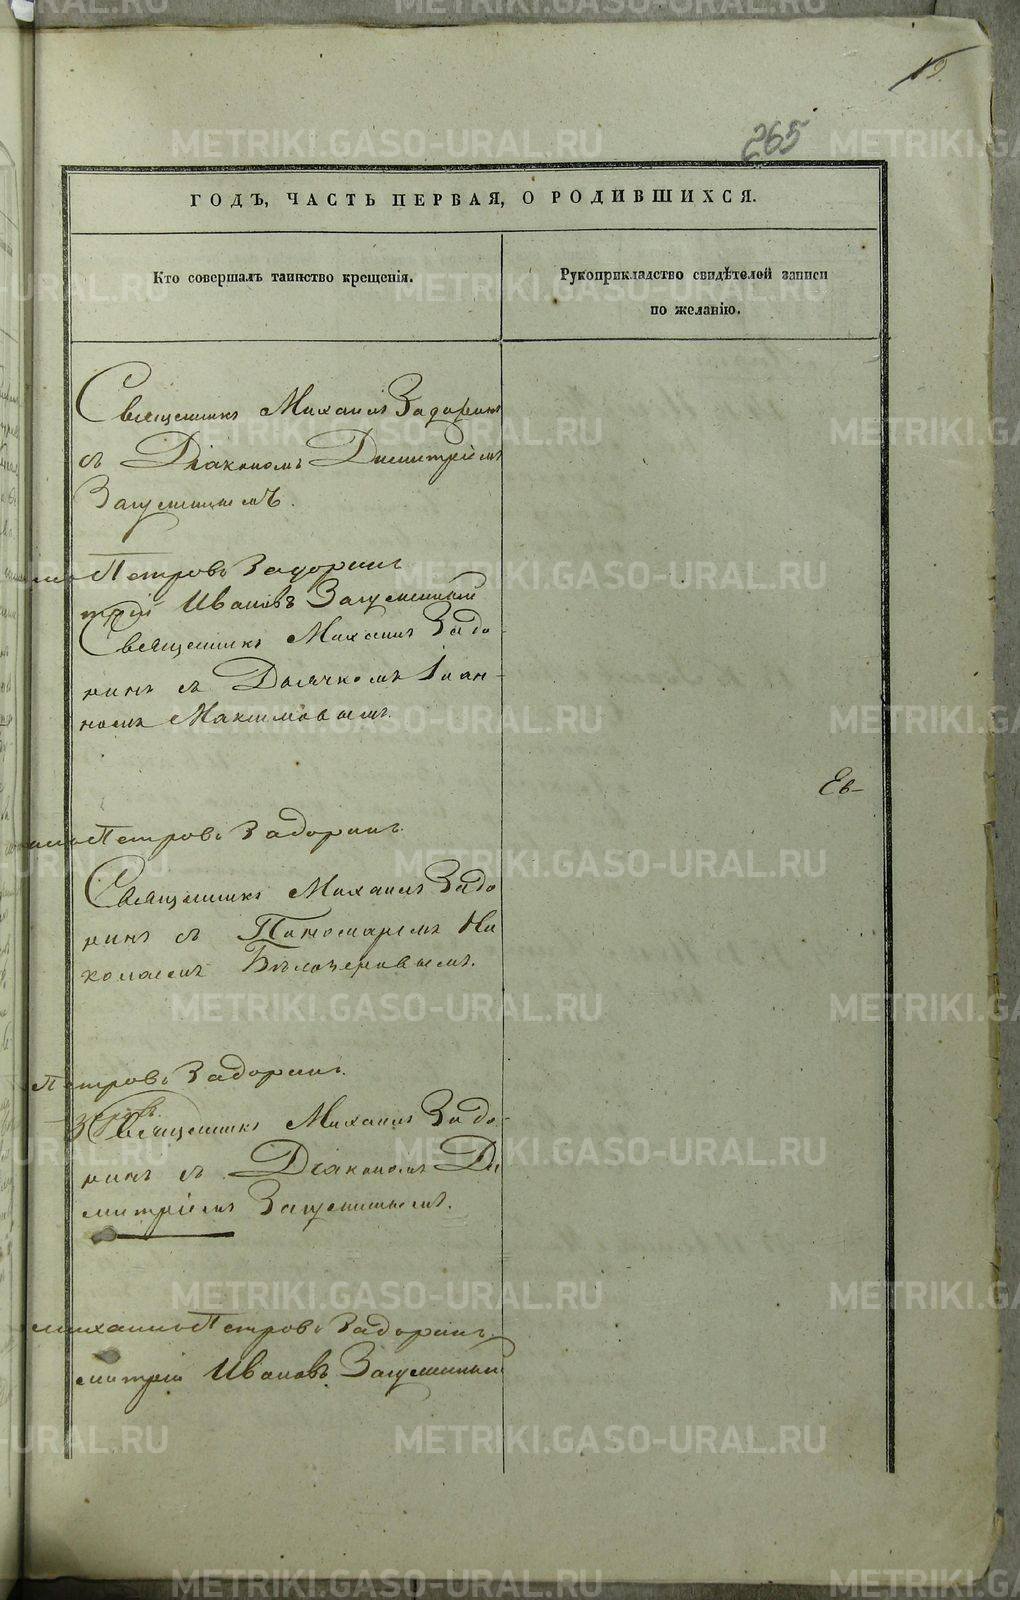 265
ГОДЪ, ЧАСТЬ ПЕРВАЯ, О РОДИВШИХСЯ.
Кто совершалъ таинство крещенія.
Рукоприкладство свидѣтелей записи
по желанію.
Священникъ Михаилъ Задоринъ
съ Діакономъ Димитріемъ
Загуменнымъ.
Петровъ Задоринъ
трій Ивановъ Загуменный
Священникъ Михаилъ Задо-
ринъ съ Дьячкомъ Іоан-
номъ Максимовымъ.
Ев-
Петровъ Задоринъ.
Священникъ Михаилъ Задо
ринъ съ Пономаремъ Ни
колаемъ Бѣлозеровымъ.
Петровъ Задоринъ.
Священникъ Михаилъ Задо-
ринъ съ Діакономъ Ди
митріемъ Загуменнымъ.
михаилъ Петровъ Задоринъ
митрій Ивановъ Загуменный
METRIKI.GASO-URAL.RU